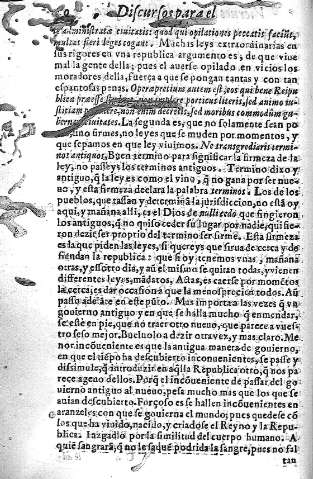 Discursos para el
administrata ciuitatis: quod qui opilationes peccatis faciũt,
multas fieri leges cogant. Muchas leyes extraordinarias en
sus rigores en vna republica argumento es, de que viue
mal la gente della; pues el auerse opilado en vicios los
moradores della, fuerça a que se pongan tantas y con tan
espantosas penas. Operæpretium autem est, eos qui bene Reipu
blica præesse porticus literis, sed animo iu
stitiam non enim decretis, sed moribus commodùm gu-
La segunda es, que no solamente sean po
cas, sino firmes, no leyes que se muden por momentos, y
que sepamos en que ley viuimos. Ne transgrediaris termi-
nos antiquos, Buen termino para significar la firmeza de la
ley, no passeys los terminos antiguos. Termino dixo y
antiguo, q̃ la ley es como el vino, q̃ no gana por ser nue-
uo, y esta firmeza declara la palabra terminos. Los de los
pueblos, que tassan y determinã la jurisdiccion, no està oy
aqui, y mañana alli, es el Dios de nulli cedo que fingieron
los antiguos, q̃ no quiso ceder su lugar por nadie, qui sie-
ron dezir ser proprio del termino ser firme. Esta firmeza
es la que piden las leyes, si quereys que sirua de cerca y de
fiendan la republica: que si oy tenemos vnas, mañana
otras, y essotro dia, y aũ el mismo se quitan todas, y vienen
differentes leyes, mãdatos, Actas, es caerse por momẽtos
la cerca, es dar occasion a que la menosprecien todos. Aũ
passo adelãte en este pũto. Mas importara las vezes q̃ vn
gouierno antiguo y en que se halla mucho q̃ enmendar,
se estè en pie, que no traer otro nueuo, que parece a vues-
tro seso mejor. Bueluolo a dezir otra vez, y mas claro. Me
nor incõueniente es que la antigua manera de gouierno,
en que el tiẽpo ha descubierto inconuenientes, se passe y
dissimule, q̃ introduzir en aq̃lla Republica otro, q̃ nos pa
rece ageno dellos. Porq̃ el incõueniente de passar del go
uierno antiguo al nueuo, pesa mucho mas que los que se
auian descubierto. Forçoso es se hallen incõuenientes en
aranzeles con que se gouierna el mundo; pues quedese cõ
los que ha viuido, nacido, y criadose el Reyno y la Repu-
blica. Iuzgadlo por la similitud del cuerpo humano. A
quiẽ sangrarã, q̃ no le saquẽ podrida la sangre, pues no fal
tan